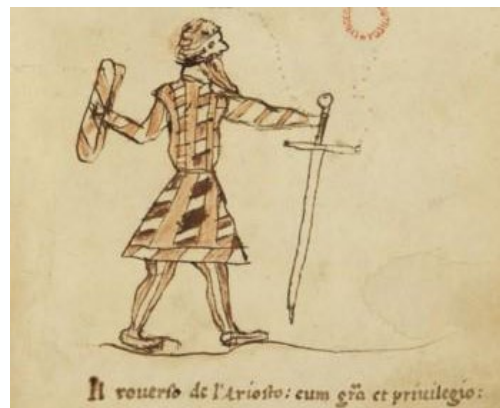 Il rouerso de l'Ariosto: cum gr̃a et priuilegio: